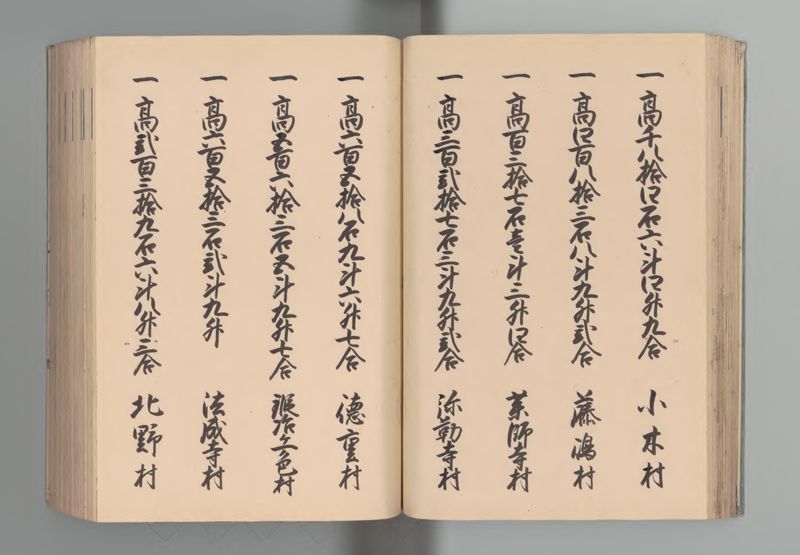 一 高千八拾四石六斗四升九合 小木村
一 高四百八拾三石八斗九升弐合 藤嶋村
一 高百三拾七石壱斗三升四合 薬師寺村
一 高三百弐拾七石三斗九升弐合 弥勒寺村
一 高六百五拾八石九斗六升七合 徳重村
一 高五百六拾三石五斗九升七合 一色村
一 高六百五拾三石弐斗九升 法成寺村
一 高弐百三拾九石六斗八升三合 北野村